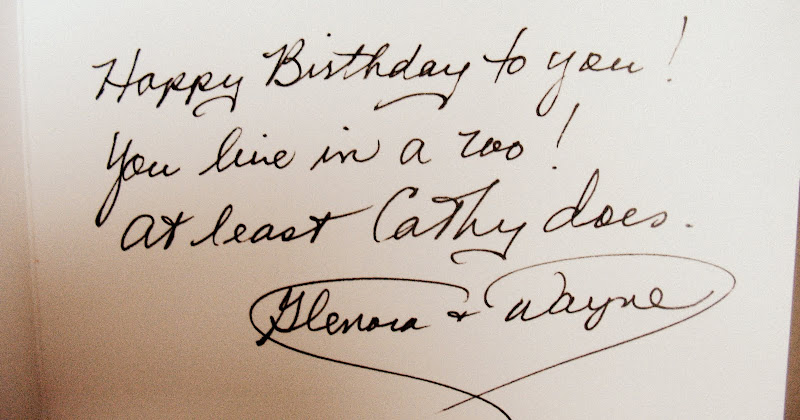 Happy Birthday to you!
You live in a zoo!
At least Cathy does.
Glenora & Wayne